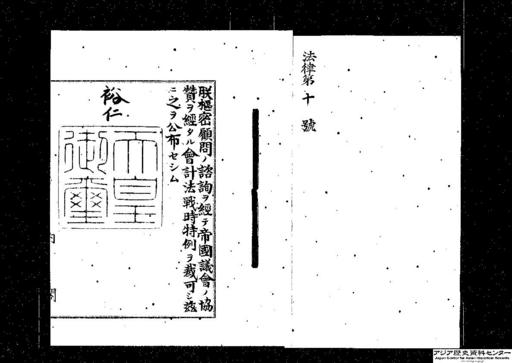 法律第十號
朕樞密顧問ノ諮詢ヲ經テ帝國議會ノ協
賛ヲ經タル會計法戰時特例ヲ裁可シ玆
ニ之ヲ公布セシム
裕仁
天皇
御璽
内閣
アジア歴史資料センター
Japan Center for Asian Historical Records